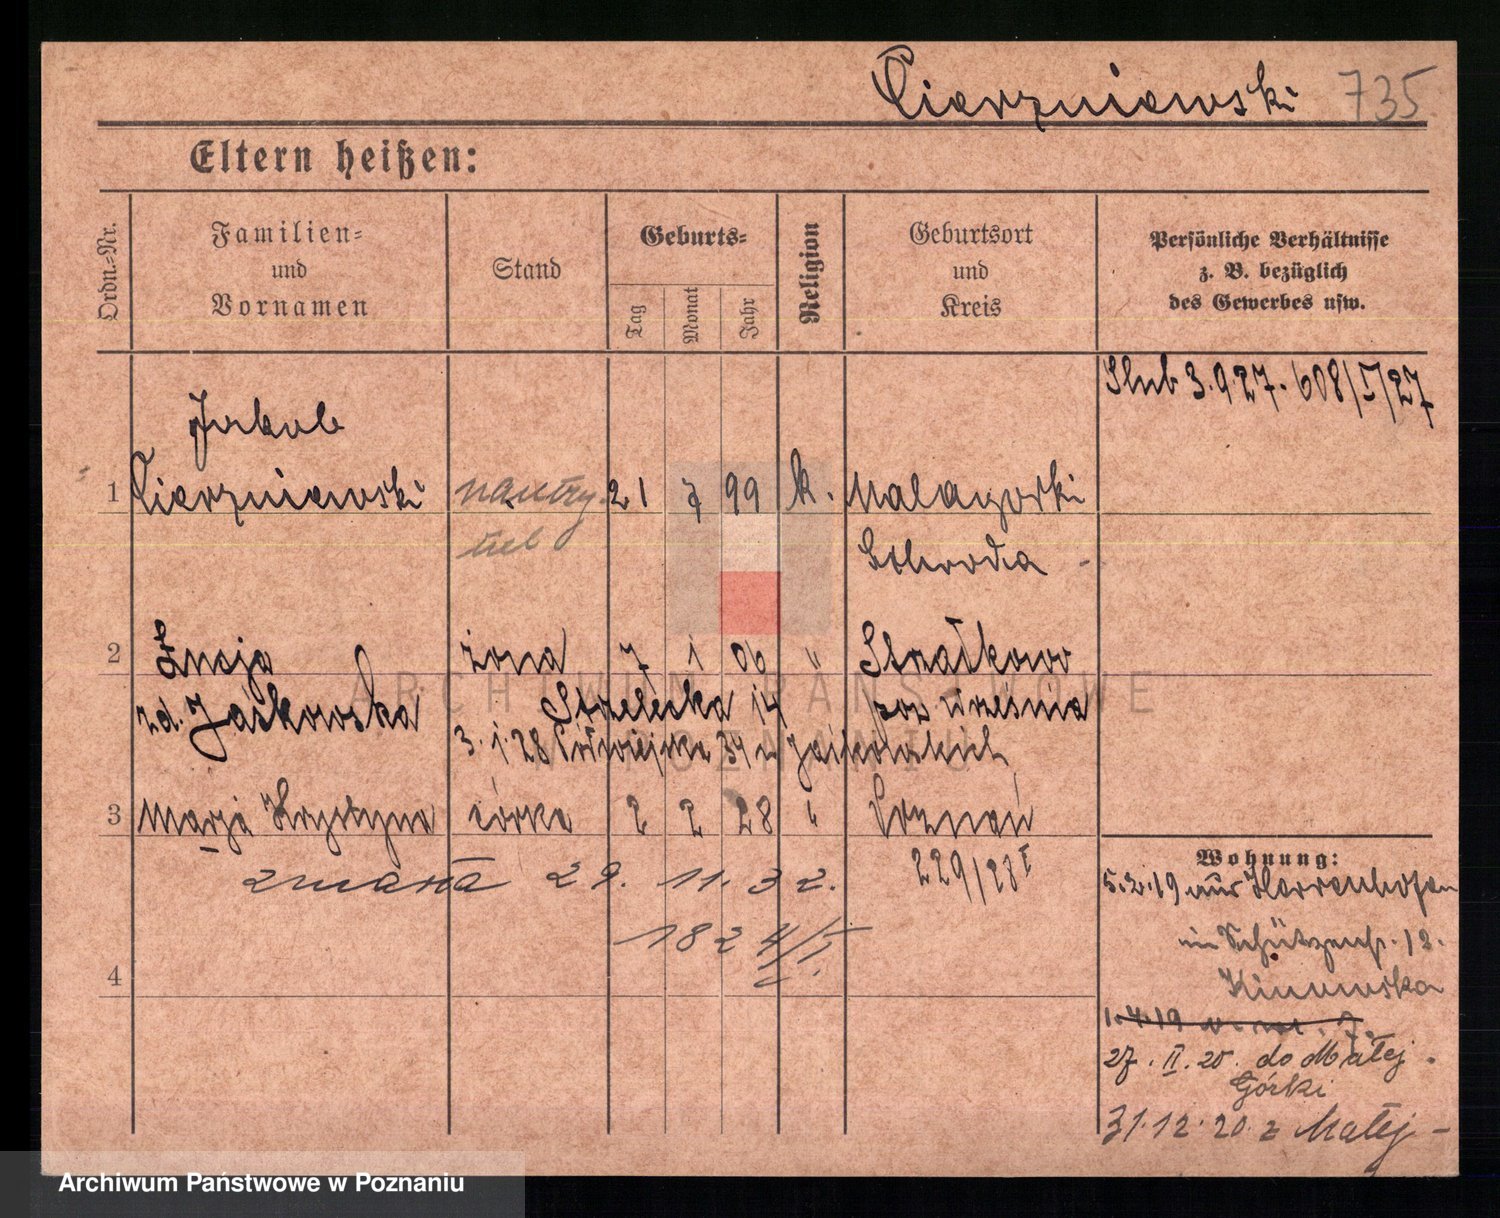 Cierzniewski 735
Eltern heißen:
Ordn.-Nr.
Familien-
und
Vornamen
Stand
Geburts-
Tag
Monat
Jahr
Religion
Geburtsort
und
Kreis
Persönliche Verhältnisse
z. B. bezüglich
des Gewerbes usw.
Ślub 3.9.27. 608/I/27
Jakub
1 Cierzniewski 21 7 99 k. Malagorki
Schroda
2 żona 7 1 06 " Strzałkowo
zd. Jaśkowska Strzelecka 14 pow Września
3.1.28 34 z
3 Marja Krystyna córka 2 2 28 " Poznań
229/28 I
zmarła 29. 11. 32.
1824/I
4
Wohnung:
5.2.19 aus Herrenhofen
in Schützenstr. 12.
1.4.19
27. II. 20. do Małej
Górki
31.12.20 z Małej -
ARCHIWUM PAŃSTWOWE
W POZNANIU
Archiwum Państwowe w Poznaniu